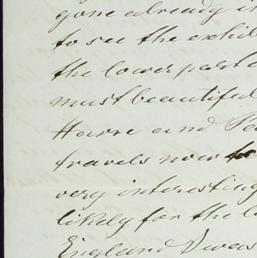 gone already i
to see the exhi
the lower part
most beautiful
and
travels now to
very interesting
likely for the
England I was